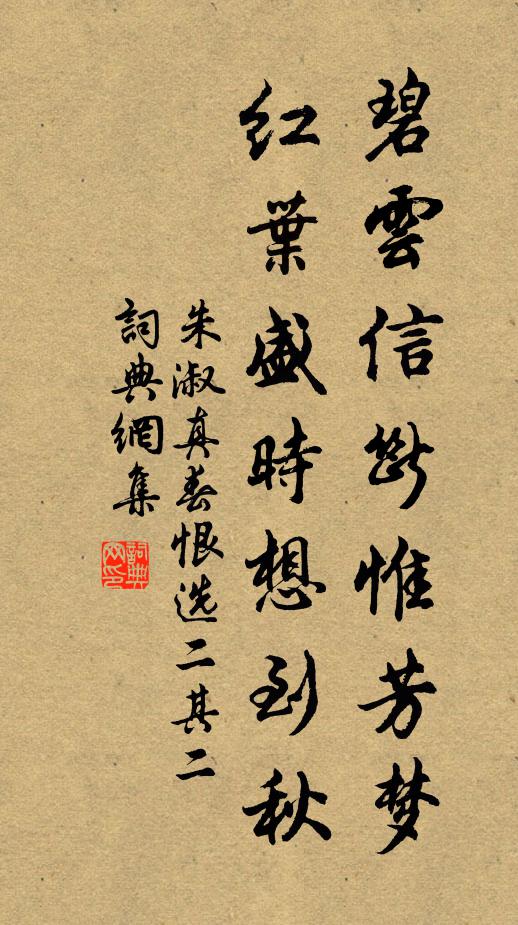 碧雲信斷惟芳梦
紅葉盛時想到秋
朱淑真春恨选二其二
詞典網集
詞典网印